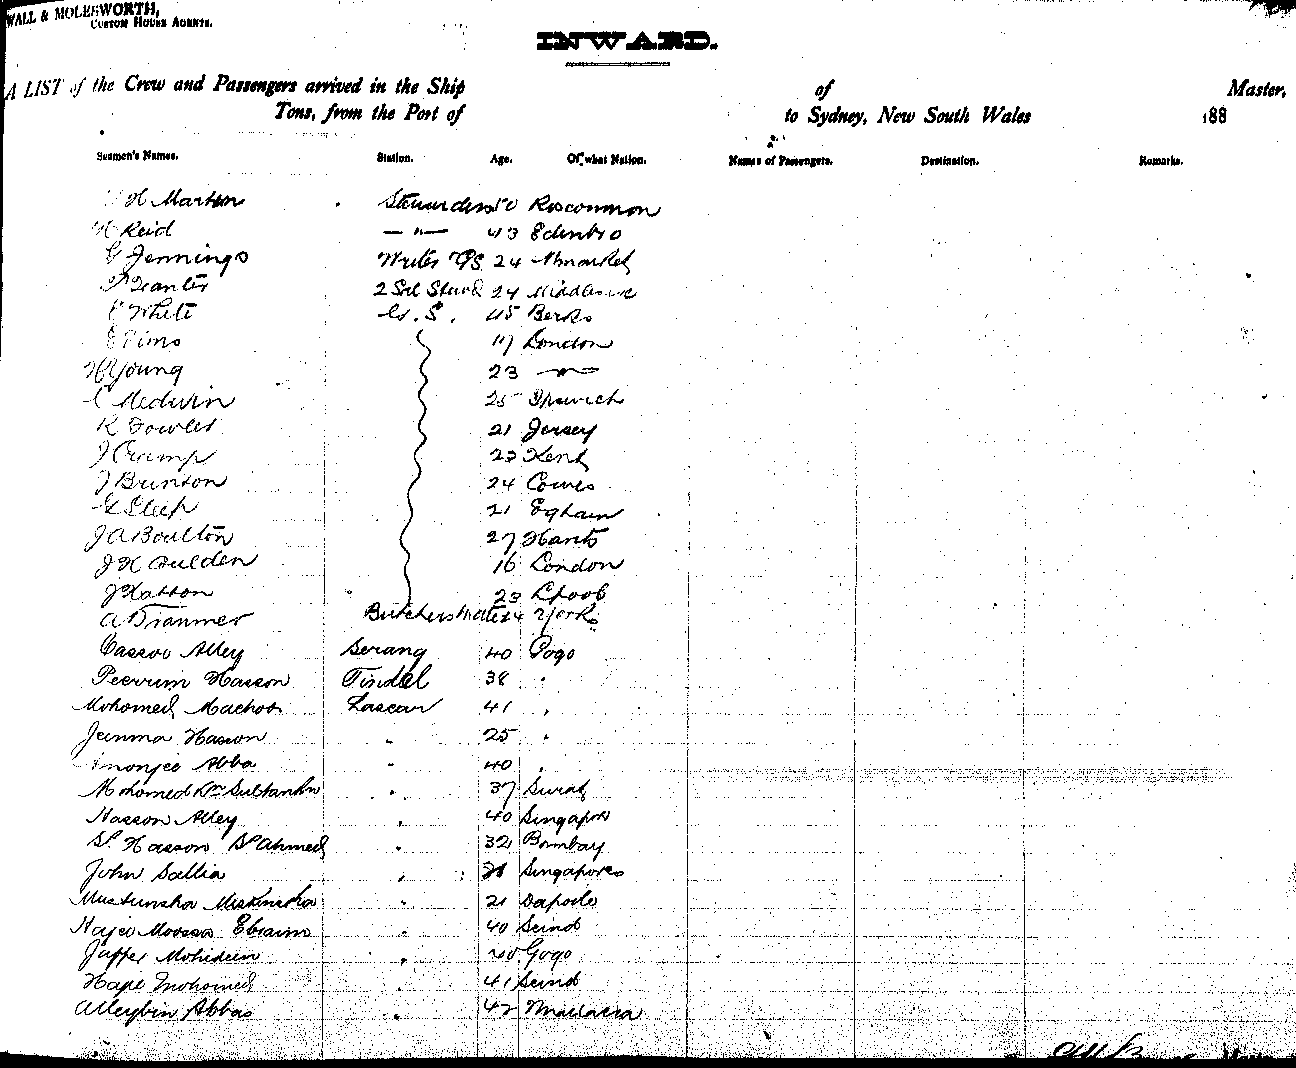 WALL & MOLESWORTH,
CUSTOM HOUSE AGENTS.
INWARD.
A LIST of the Crew and Passengers arrived in the Ship of Master,
Tons, from the Port of to Sydney, New South Wales 188
Seamen's Names. Station. Age. Of what Nation. Names of Passengers. Destination. Remarks.
H Marten Stewardess 50 Roscommon
Reid — " — 43 Edinbro
G Jennings Writer 24
Stewd 24 Middlesex
White G. S. 45 Berks
E Pims 17 London
H Young 23 — " —
Medwin 25 Ipswich
R Fowler 21 Jersey
J Crump 23 Kent
J Brinton 24 Cowes
G Sleep 21 Egham
J A Boulton 27 Hants
J H Gulden 16 London
J Hatton 23 Lpool
A Tranmer Butchers Mate 24 Yorks
Cassoo Alley Serang 40 Gogo
Peerum Hasson Tindal 38 "
Mohomed Machoo Lascar 41 "
Jeenma Hasson " 25 "
Abba " 40 "
Mohomed Sultankhn " 37 Surat
Hasson Alley " 40 Singapore
Sk. Hasson Sk Ahmed " 32 Bombay
John Sallia " Singapore
Miskinsha " 21 Dapole
Hajee Moossa Ebraim " 40 Scind
Jaffer Mohideen " Gogo
Mohomed 41 Scind
Alleybin Abbas " 42 Mallacca